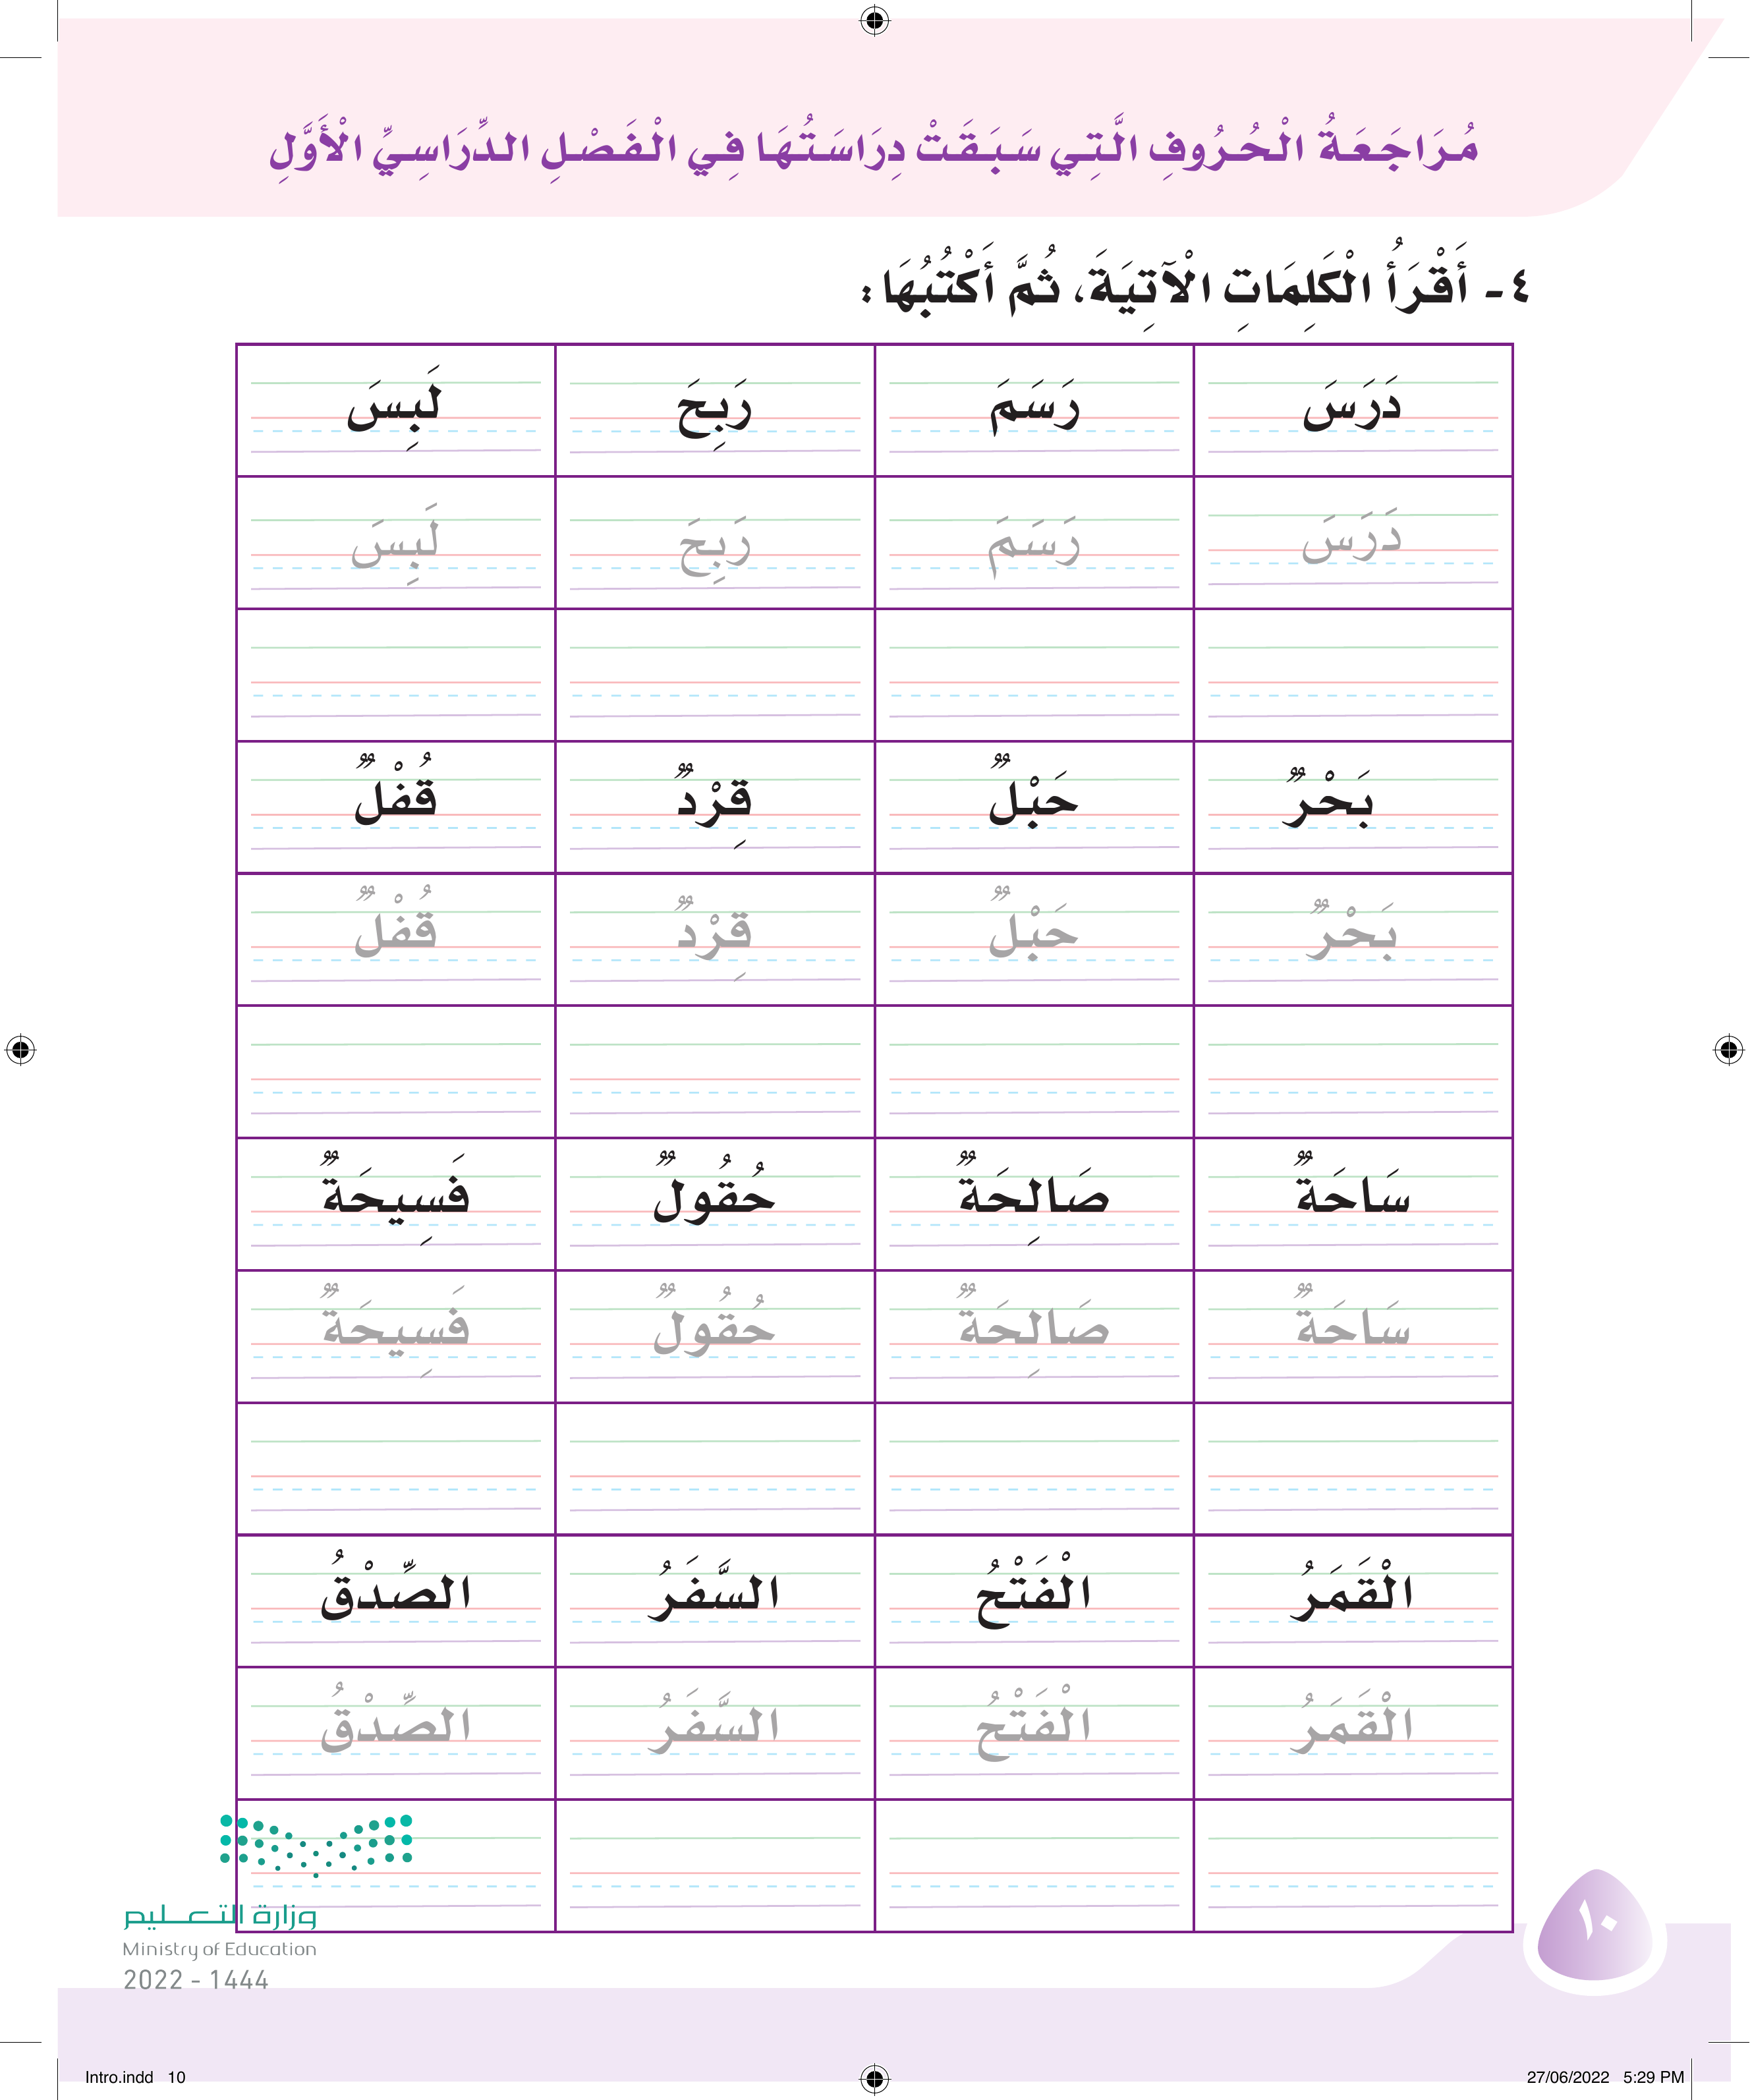 مُرَاجَعَةُ الْحُرُوفِ الَّتِي سَبَقَتْ دِرَاسَتُهَا فِي الْفَصْلِ الدِّرَاسِيِّ الْأَوَّلِ
٤- أَقْرَأُ الْكَلِمَاتِ الْآتِيَةَ، ثُمَّ أَكْتُبُهَا:
دَرَسَ رَسَمَ رَبِحَ لَبِسَ
دَرَسَ رَسَمَ رَبِحَ لَبِسَ
بَحْرٌ حَبْلٌ قِرْدٌ قُفْلٌ
بَحْرٌ حَبْلٌ قِرْدٌ قُفْلٌ
سَاحَةٌ صَالِحَةٌ حُقُولٌ فَسِيحَةٌ
سَاحَةٌ صَالِحَةٌ حُقُولٌ فَسِيحَةٌ
الْقَمَرُ الْفَتْحُ السَّفَرُ الصِّدْقُ
الْقَمَرُ الْفَتْحُ السَّفَرُ الصِّدْقُ
وزارة التعليم
Ministry of Education
2022 - 1444
١٠
Intro.indd 10
27/06/2022 5:29 PM